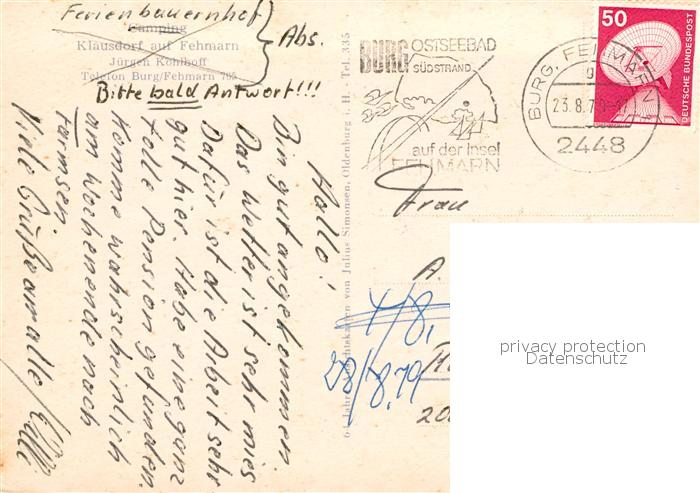 Ferienbauernhof
Camping
Klausdorf auf Fehmarn
Jürgen Kohlhoff
Telefon Burg/Fehmarn 795
Abs.
Bitte bald Antwort!!!
Hallo!
Bin gut angekommen
Das Wetter ist sehr mies
Dafür ist die Arbeit sehr
gut hier. Habe eine ganz
tolle Pension gefunden.
Komme wahrscheinlich
am Wochenende nach
Farmsen
Viele Grüße an alle
Julius Simonsen, Oldenburg i. H. - Tel. 335
BURG OSTSEEBAD
SÜDSTRAND
auf der Insel
FEHMARN
BURG, FEHMARN
g
23.8.7
2448
50
DEUTSCHE BUNDESPOST
Frau
A.
4/8,
28/8.79
privacy protection
Datenschutz